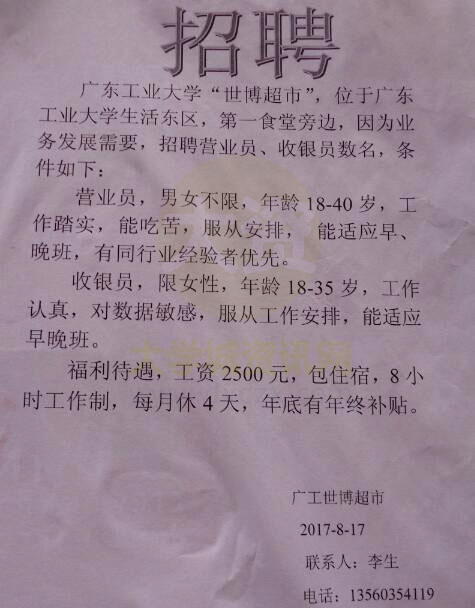 招聘
广东工业大学“世博超市”，位于广东
工业大学生活东区，第一食堂旁边，因为业
务发展需要，招聘营业员、收银员数名，条
件如下：
营业员，男女不限，年龄 18-40 岁，工
作踏实，能吃苦，服从安排， 能适应早、
晚班，有同行业经验者优先。
收银员，限女性，年龄 18-35 岁，工作
认真，对数据敏感，服从工作安排，能适应
早晚班。
大学城资讯网
福利待遇，工资 2500 元，包住宿，8 小
时工作制，每月休 4 天，年底有年终补贴。
广工世博超市
2017-8-17
联系人：李生
电话：13560354119